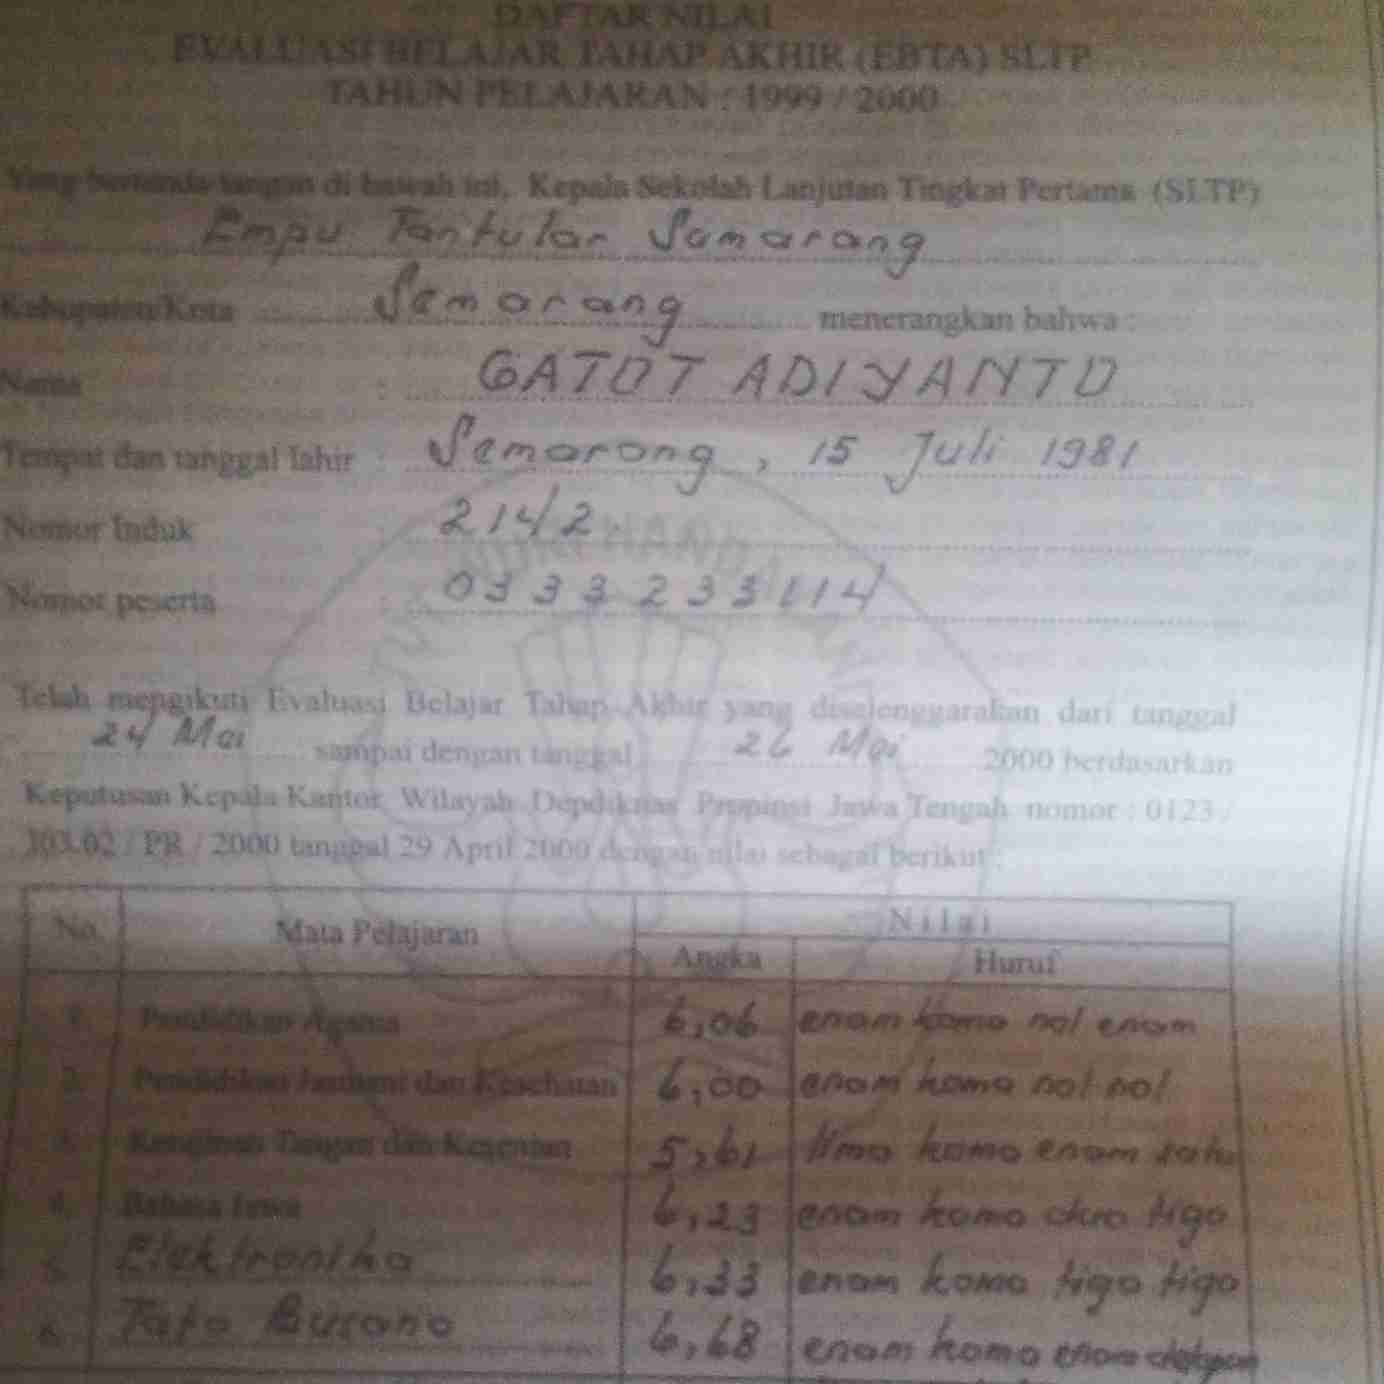 DAFTAR NILAI
EVALUASI BELAJAR TAHAP AKHIR (EBTA) SLTP
TAHUN PELAJARAN : 1999 / 2000
Yang bertanda tangan di bawah ini, Kepala Sekolah Lanjutan Tingkat Pertama (SLTP)
Empu Tantular Semarang
Kabupaten/Kota Semarang menerangkan bahwa :
Nama : GATOT ADIYANTO
Tempat dan tanggal lahir : Semarang, 15 Juli 1981
Nomor Induk : 2142
Nomor peserta : 0333233114
Telah mengikuti Evaluasi Belajar Tahap Akhir yang diselenggarakan dari tanggal
24 Mei sampai dengan tanggal 26 Mei 2000 berdasarkan
Keputusan Kepala Kantor Wilayah Depdiknas Propinsi Jawa Tengah nomor : 0123 /
103.02 / PR / 2000 tanggal 29 April 2000 dengan nilai sebagai berikut :
No. Mata Pelajaran Nilai
Angka Huruf
1. Pendidikan Agama 6,06 enam koma nol enam
2. Pendidikan Jasmani dan Kesehatan 6,00 enam koma nol nol
3. Kerajinan Tangan dan Kesenian 5,61 lima koma enam satu
4. Bahasa Jawa 6,23 enam koma dua tiga
5. Elektronika 6,33 enam koma tiga tiga
6. Tata Busana 6,68 enam koma enam delapan